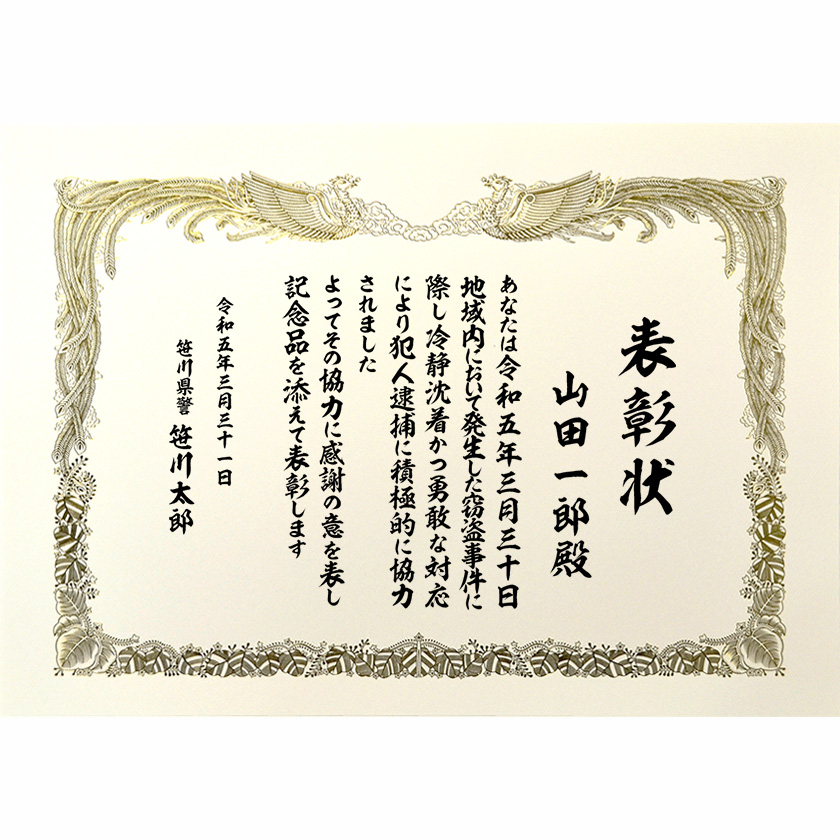 表彰状
山田一郎殿
あなたは令和五年三月三十日
地域内において発生した窃盗事件に
際し冷静沈着かつ勇敢な対応
により犯人逮捕に積極的に協力
されました
よってその協力に感謝の意を表し
記念品を添えて表彰します
令和五年三月三十一日
笹川県警 笹川太郎